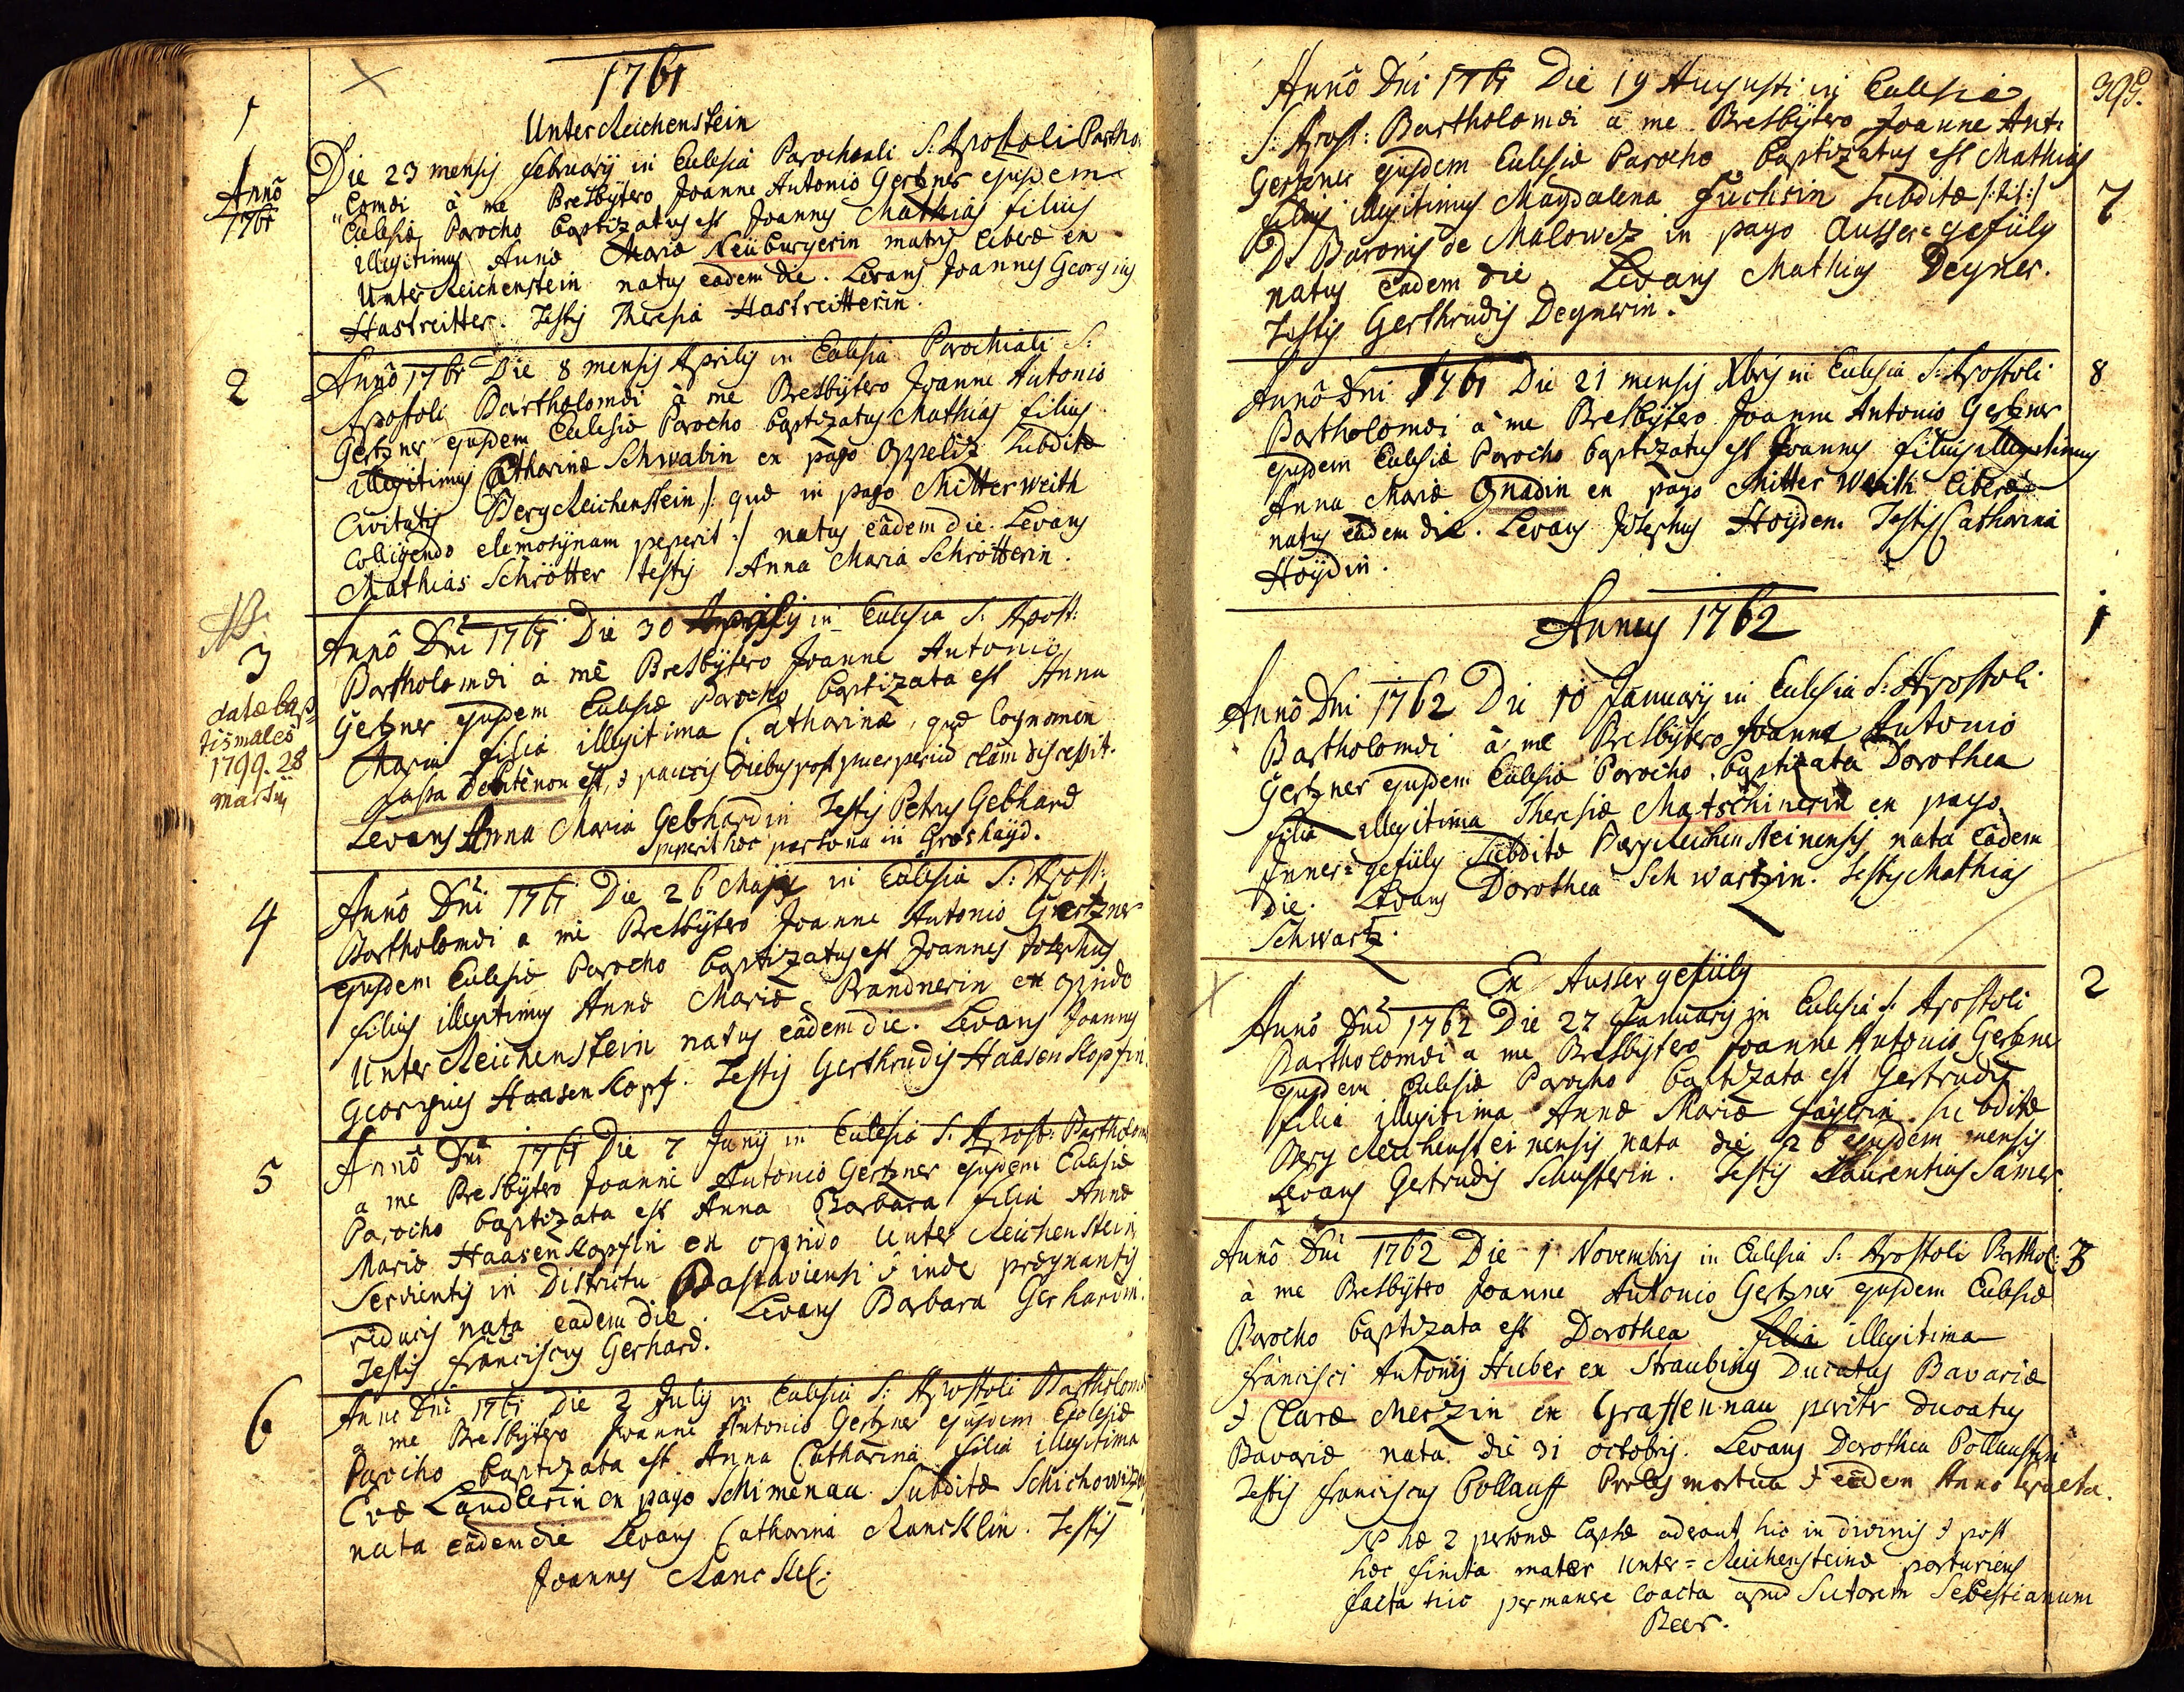 1761
Unter Reichenstein
1
Anno
1761
Die 23 mensis Februarij in Eclesia Parochiali S: Apostoli Bartho:
lomæi à me Presbÿtero Joanne Antonio Gertzner ejusdem
Eclesiæ Parocho baptizatus est Joannes Mathias filius
illegitimus Annæ Mariæ Neüburgerin matris liberæ ex
Unter Reichenstein natus eâdem die. Levans Joannes Georgius
Hastreitter. Testis Theresia Hastreitterin.
2
Annô 1761 Die 8 mensis Aprilis in Eclesia Parochiali S:
Apostoli Bartholomæi à me Presbÿtero Joanne Antonio
Gertzner ejusdem Eclesiæ Parocho baptizatus Mathias filius
illegitimus Catharinæ Schwabin ex pago Oppelitz Subditæ
Civitatis BergReichenstein /: quæ in pago Mitterweith
Colligendo elemosÿnam peperit :/ natus eâdem die. Levans
Mathias Schrötter testis Anna Maria Schrötterin.
NB.
3
datæ bap=
tismales
1799. 28
martij
Annô Dni 1761 Die 30 Aprilis in Eclesia S: Apost:
Bartholomæi à me Presbÿtero Joanne Antonio
Gertzner ejusdem Eclesiæ Parocho baptizata est Anna
Maria filia illegitima Catharinæ, quæ Cognomen
fassa non est, & paucis diebus post puerperium clàm discessit.
Levans Anna Maria Gebhardin Testis Petrus Gebhard
peperit hæc persona in Groshaÿd.
4
Annô Dni 1761 Die 26 Maji in Eclesia S: Apost:
Bartholomæi a me Presbÿtero Joanne Antonio Gertzner
ejusdem Eclesiæ Parocho baptizatus est Joannes Josephus
filius illegitimus Annæ Mariæ Brandnerin ex opido
Unter Reichenstein natus eâdem die. Levans Joannes
Georgius Haasenkopf. Testis Gerthrudis Haasenkopfin.
5
Annô Dni 1761 Die 7 Junij in Eclesia S: Apost: Bartholom
a me Presbÿtero Joanne Antonio Gertzner ejusdem Eclesiæ
Parocho baptizata est Anna Barbara filia Annæ
Mariæ Haasenkopfin ex opido Unter Reichenstein
Servientis in Districtu Passaviensi & inde prægnantis
reducis nata eâdem die. Levans Barbara Gerhardin.
Testis Franciscus Gerhard.
6
Anno Dni 1761 Die 2 Julij in Eclesia S: Apostoli Bartholomæ
a me Presbÿtero Joanne Antonio Gertzner ejusdem Eclesiæ
Parocho baptizata est Anna Catharina filia illegitima
Evæ Landlerin ex pago Schimenau Subditæ Schichowitz
nata eâdem die Levans Catharina Rancklin. Testis
Joannes Ranckel:
399.
Annô Dni 1761 Die 19 Augusti in Eclesia
S: Apost: Bartholomæi à me Presbÿtero Joanne Ant:
Gertzner ejusdem Eclesiæ Parocho baptizatus est Mathias
7
filius illegitimus Magdalena Fuchsin Subditæ /:tit:/
D: Baronis de Malowez in pago Ausser=gefüly
natus eadem die Levans Mathias Degner.
Testis Gerthrudis Degnerin.
8
Annô Dni 1761 Die 21 mensis Xbris in Eclesia S: Apostoli
Bartholomæi à me Presbÿtero Joanne Antonio Gertzner
ejusdem Eclesiæ Parocho baptizatus est Joannes filius illegitimus
Anna Mariæ Gnadin ex pago Mitter Weith liberæ
natus eâdem die. Levans Josephus Hoÿden. Testis Catharina
Hoÿdin.
Annus 1762
1
Annô Dni 1762 Die 10 Januarÿ in Eclesia S: Apostoli
Bartholomæi à me Presbÿtero Joanne Antonio
Gertzner ejusdem Eclesiæ Parocho baptizata Dorothea
filia illegitima Theresiæ Matschinerin ex pago
Inner=gefüly Subditæ BergReichensteinensis nata eâdem
die. Levans Dorothea Schwartzin. Testis Mathias
Schwartz.
Ex Ausser gefüly
2
Annô Dni 1762 Die 27 Januarij in Eclesia S: Apostoli
Bartholomæi a me Presbÿtero Joanne Antonio Gertzner
ejusdem Eclesiæ Parocho baptizata est Gertrudis
filia illegitima Annæ Mariæ subditæ
Berg Reichensteinensis nata die 26 ejusdem mensis
Levans Gertrudis Schusterin. Testis Laurentius Samer.
3
Annô Dni 1762 Die 1 Novembris in Eclesia S: Apostoli Barthol:
à me Presbÿtero Joanne Antonio Gertzner ejusdem Eclesiæ
Parocho baptizata est Dorothea filia illegitima
Francisci Antonij Huber ex Straubing Ducatus Bavariæ
& Claræ Merzin ex Graffennau pariter ducatus
Bavariæ nata die 31 octobris. Levans Dorothea Pollauffin
Testis Franciscus Pollauff Proles mortua & eâdem Anno sepulta.
NB hæ 2 personæ captæ aderant hic in divinis & post
hæc finita mater Unter=Reichensteinæ parturiens
facta hic permanere coacta apud Sutorem Sebastianum
Beer.